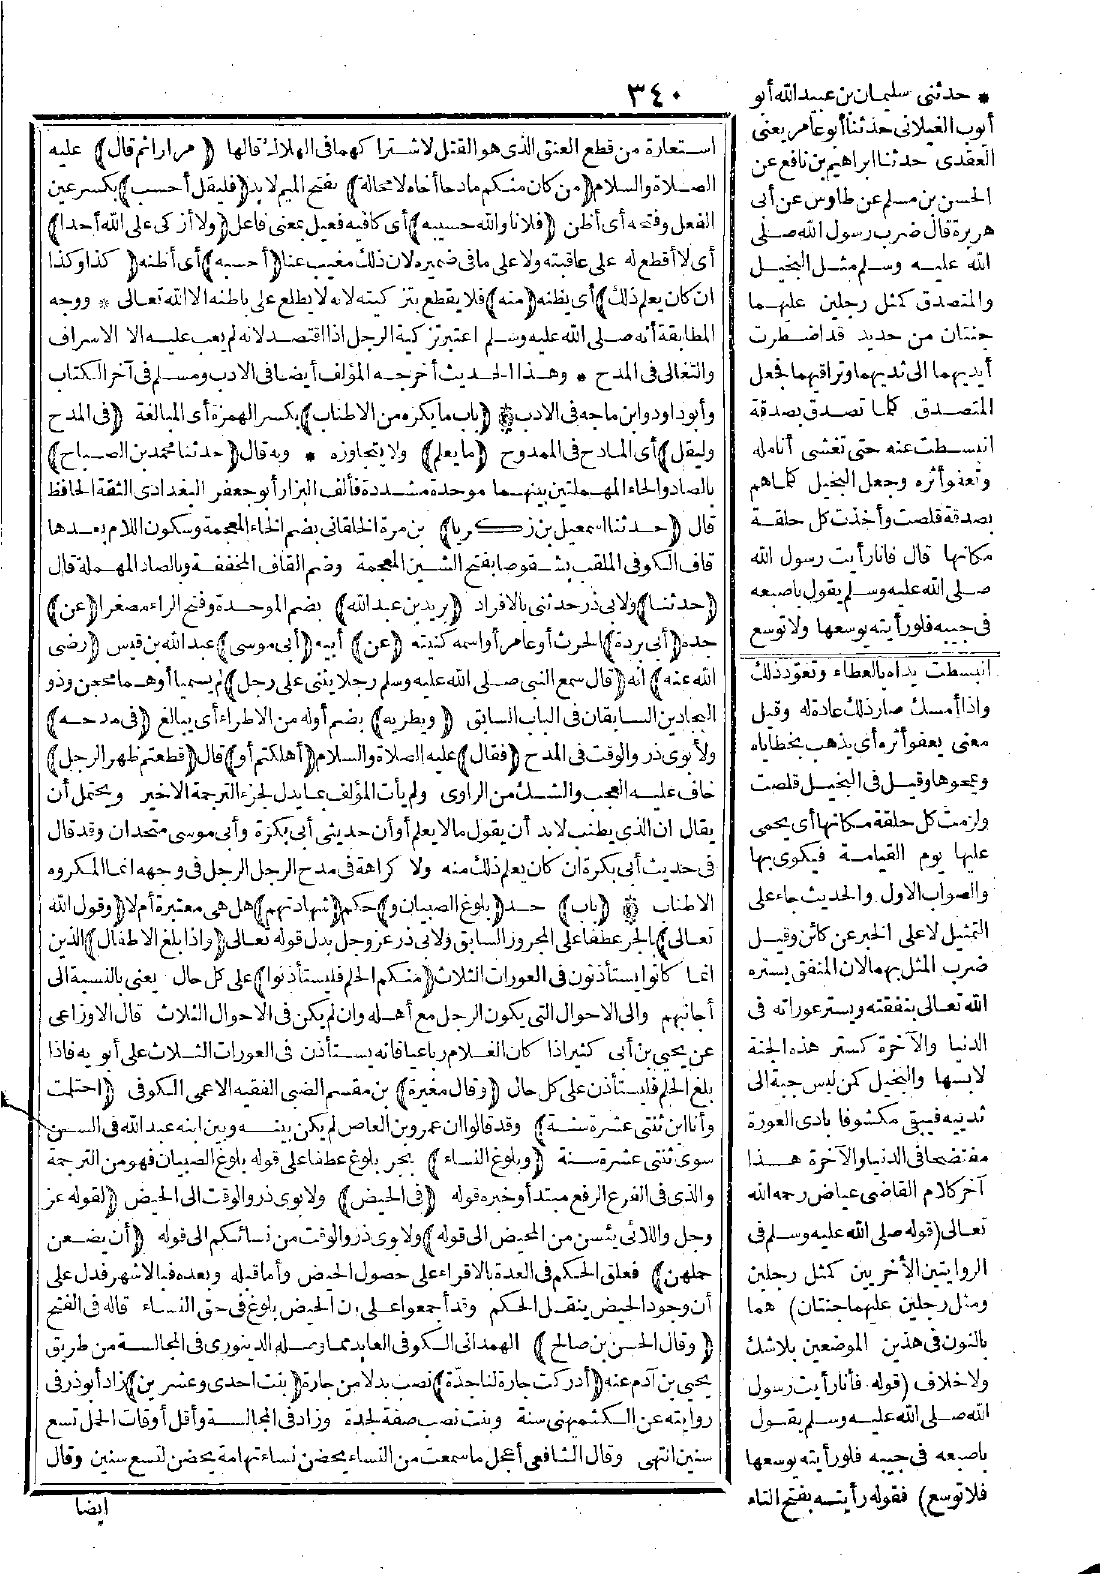 ٣٤٠
استعارة من قطع العنق الذى هو القتل لاشتراكهما فى الهلاك قالها (مرارا ثم قال) عليه
الصلاة والسلام (من كان منكم مادحا أخاه لا محالة) بفتح الميم لابد (فليقل أحسب) بكسر عين
الفعل وفتحه أى أظن (فلانا والله حسيبه) أى كافيه فعيل بمعنى فاعل (ولا أزكى على الله أحدا)
أى لا أقطع له على عاقبته ولا على ما فى ضميره لان ذلك مغيب عنا (أحسبه) أى أظنه (كذا وكذا
ان كان يعلم ذلك) أى يظنه (منه) فلا يقطع بتزكيته لانه لا يطلع على باطنه الا الله تعالى * ووجه
المطابقة أنه صلى الله عليه وسلم اعتبر تزكية الرجل اذا اقتصد لانه لم يعب عليه الا الاسراف
والتغالى فى المدح * وهذا الحديث أخرجه المؤلف أيضا فى الادب ومسلم فى آخر الكتاب
وأبو داود وابن ماجه فى الادب ۞ (باب ما يكره من الاطناب) بكسر الهمزة أى المبالغة (فى المدح
وليقل) أى المادح فى الممدوح (ما يعلم) ولا يتجاوزه * وبه قال (حدثنا محمد بن الصباح)
بالصاد والحاء المهملتين بينهما موحدة مشددة فألف البزار أبو جعفر البغدادى الثقة الحافظ
قال (حدثنا اسمعيل بن زكريا) بن مرة الخلقانى بضم الخاء المعجمة وسكون اللام بعدها
قاف الكوفى الملقب بشقوصا بفتح الشين المعجمة وضم القاف المخففة وبالصاد المهملة قال
(حدثنا) ولابى ذر حدثنى بالافراد (بريد بن عبد الله) بضم الموحدة وفتح الراء مصغرا (عن)
جده (أبى بردة) الحرث أو عامر أو اسمه كنيته (عن) أبيه (أبى موسى) عبد الله بن قيس (رضى
الله عنه) أنه (قال سمع النبى صلى الله عليه وسلم رجلا يثنى على رجل) لم يسميا أو هما محجن وذو
البجادين السابقان فى الباب السابق (ويطريه) بضم أوله من الاطراء أى يبالغ (فى مدحه)
ولابوى ذر والوقت فى المدح (فقال) عليه الصلاة والسلام (أهلكتم أو) قال (قطعتم ظهر الرجل)
خاف عليه العجب والشك من الراوى ولم يأت المؤلف بما يدل لجزء الترجمة الاخير ويحتمل أن
يقال ان الذى يطنب لابد أن يقول ما لا يعلم أو أن حديثى أبى بكرة وأبى موسى متحدان وقد قال
فى حديث أبى بكرة ان كان يعلم ذلك منه ولا كراهة فى مدح الرجل الرجل فى وجهه انما المكروه
الاطناب ۞ (باب) حد (بلوغ الصبيان و) حكم (شهادتهم) هل هى معتبرة أم لا (وقول الله
تعالى) بالجر عطفا على المجرور السابق ولابى ذر عز وجل بدل قوله تعالى (واذا بلغ الاطفال) الذين
انما كانوا يستأذنون فى العورات الثلاث (منكم الحلم فليستأذنوا) على كل حال يعنى بالنسبة الى
أجانبهم والى الاحوال التى يكون الرجل مع أهله وان لم يكن فى الاحوال الثلاث قال الاوزاعى
عن يحيى بن أبى كثير اذا كان الغلام رباعيا فانه يستأذن فى العورات الثلاث على أبويه فاذا
بلغ الحلم فليستأذن على كل حال (وقال مغيرة) بن مقسم الضبى الفقيه الاعمى الكوفى (احتلمت
وأنا ابن ثنتى عشرة سنة) وقد قالوا ان عمرو بن العاص لم يكن بينه وبين ابنه عبد الله فى السن
سوى ثنتى عشرة سنة (وبلوغ النساء) بجر بلوغ عطفا على قوله بلوغ الصبيان فهو من الترجمة
والذى فى الفرع الرفع مبتدأ وخبره قوله (فى الحيض) ولابوى ذر والوقت الى الحيض (لقوله عز
وجل واللائى يئسن من المحيض الى قوله) ولابوى ذر والوقت من نسائكم الى قوله (أن يضعن
حملهن) فعلق الحكم فى العدة بالاقراء على حصول الحيض وأما قبله وبعده فبالاشهر فدل على
أن وجود الحيض ينقل الحكم وقد أجمعوا على ان الحيض بلوغ فى حق النساء قاله فى الفتح
(وقال الحسن بن صالح) الهمدانى الكوفى العابد مما وصله الدينورى فى المجالسة من طريق
يحيى بن آدم عنه (أدركت جارة لنا جدة) نصب بدلا من جارة (بنت احدى وعشرين) زاد أبو ذر فى
روايته عن الكشميهنى سنة وبنت نصب صفة لجدة وزاد فى المجالسة وأقل أوقات الحمل تسع
سنين انتهى وقال الشافعى أعجل ما سمعت من النساء يحضن نساء تهامة يحضن لتسع سنين وقال
أيضا
* حدثنى سليمان بن عبيد الله أبو
أيوب الغيلانى حدثنا أبو عامر يعنى
العقدى حدثنا ابراهيم بن نافع عن
الحسن بن مسلم عن طاوس عن أبى
هريرة قال ضرب رسول الله صلى
الله عليه وسلم مثل البخيل
والمتصدق كمثل رجلين عليهما
جنتان من حديد قد اضطرت
أيديهما الى ثديهما وتراقيهما فجعل
المتصدق كلما تصدق بصدقة
انبسطت عنه حتى تغشى أنامله
وتعفو أثره وجعل البخيل كلما هم
بصدقة قلصت وأخذت كل حلقة
مكانها قال فانا رأيت رسول الله
صلى الله عليه وسلم يقول باصبعه
فى جيبه فلو رأيته يوسعها ولا توسع
انبسطت يداه بالعطاء وتعود ذلك
واذا أمسك صار ذلك عادة له وقيل
معنى يعفو أثره أى يذهب بخطاياه
ويمحوها وقيل فى البخيل قلصت
ولزمت كل حلقة مكانها أى يحمى
عليها يوم القيامة فيكوى بها
والصواب الاول والحديث جاء على
التمثيل لا على الخبر عن كائن وقيل
ضرب المثل بهما لان المنفق يستره
الله تعالى بنفقته ويستر عوراته فى
الدنيا والآخرة كستر هذه الجنة
لابسها والبخيل كمن لبس جبة الى
ثدييه فيبقى مكشوفا بادى العورة
مفتضحا فى الدنيا والآخرة هذا
آخر كلام القاضى عياض رحمه الله
تعالى (قوله صلى الله عليه وسلم فى
الروايتين الأخريين كمثل رجلين
ومثل رجلين عليهما جنتان) هما
بالنون فى هذين الموضعين بلا شك
ولا خلاف (قوله فأنا رأيت رسول
الله صلى الله عليه وسلم يقول
باصبعه فى جيبه فلو رأيته يوسعها
فلا توسع) فقوله رأيته بفتح التاء